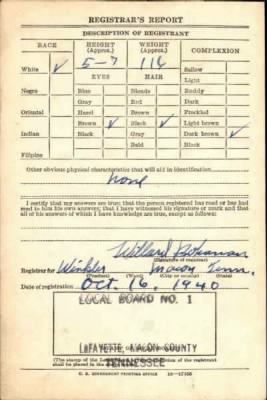 REGISTRAR'S REPORT
DESCRIPTION OF REGISTRANT
RACE HEIGHT (Approx.) WEIGHT (Approx.) COMPLEXION
White ✓ 5-7 116 Sallow
EYES HAIR Light
Negro Blue Blonde Ruddy
Gray Red Dark
Oriental Hazel Brown Freckled
Brown ✓ Black ✓ Light brown
Indian Black Gray Dark brown ✓
Bald Black
Filipino
Other obvious physical characteristics that will aid in identification
none
I certify that my answers are true; that the person registered has read or has had read to him his own answers; that I have witnessed his signature or mark and that all of his answers of which I have knowledge are true, except as follows:
Willard
(Signature of registrar)
Registrar for Winkler Macon Tenn.
(Precinct) (City or county) (State)
Date of registration Oct. 16, 1940
LOCAL BOARD NO. 1
LAFAYETTE, MACON COUNTY
TENNESSEE
(The stamp of the Local of the registration
shall be placed in the
U. S. GOVERNMENT PRINTING OFFICE